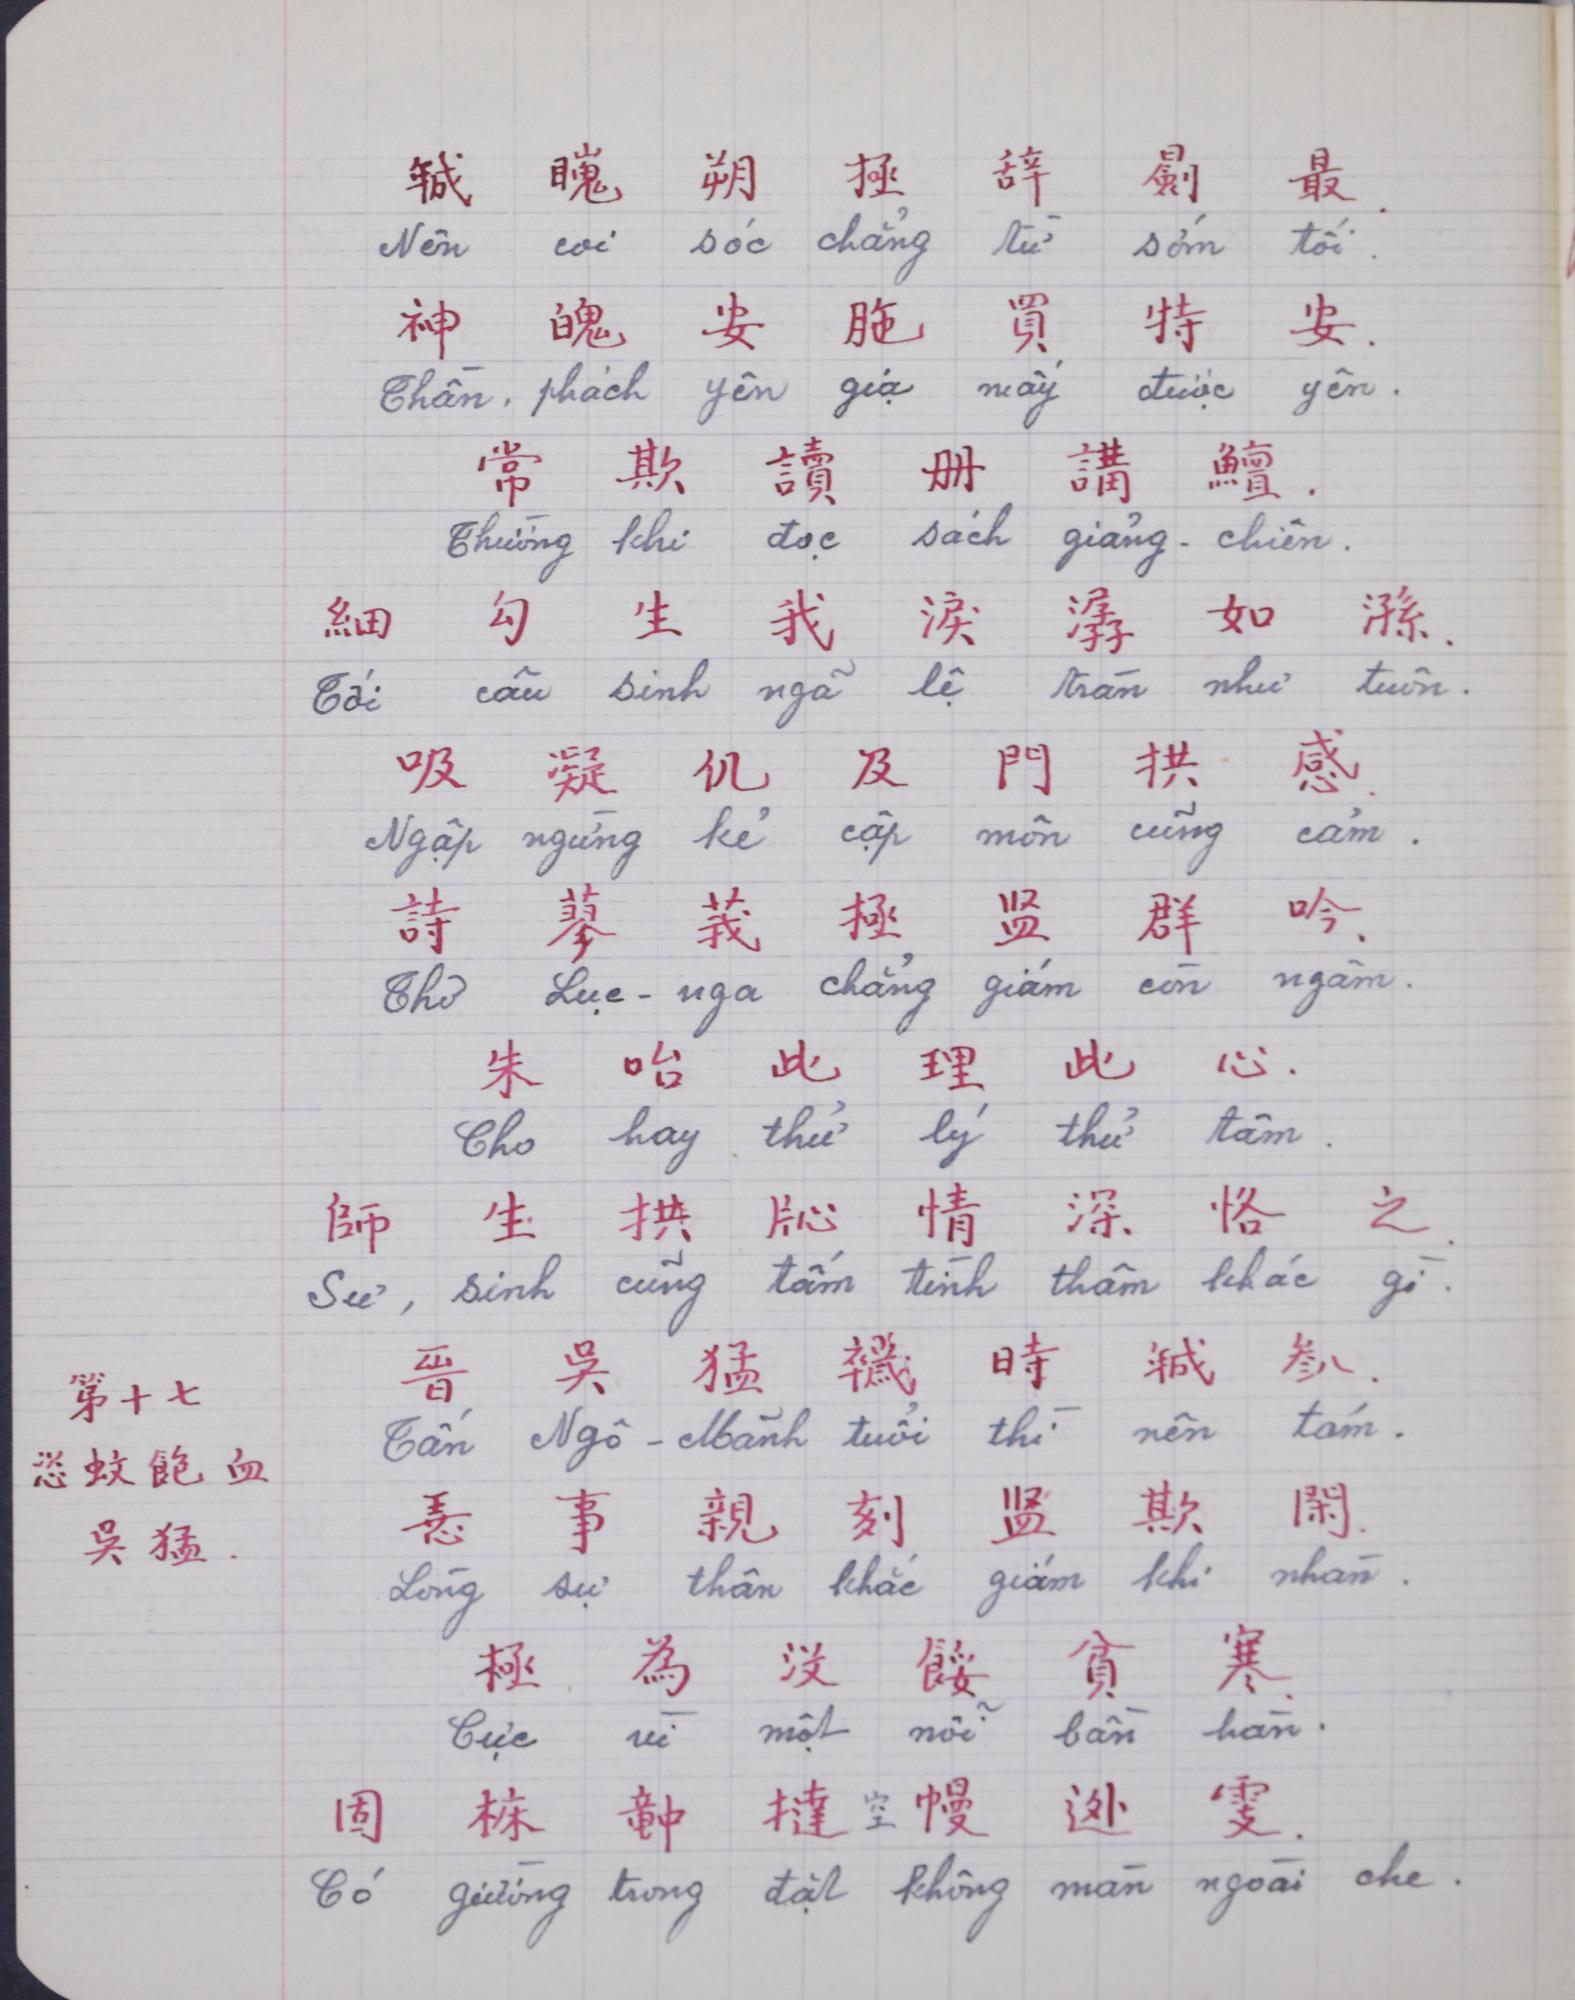 𢧚 𥋳 朔 極 辞 𣋽 最.
Nên coi sóc chẳng từ sớm tối.
神 魄 安 㐌 買 特 安.
Thần, phách yên giạ mấy được yên.
常 欺 讀 册 講 鱣.
Thường khi đọc sách giảng-chiên.
細 勾 生 我 淚 潺 如 㵋.
Tới câu sinh ngã lệ tràn như tuôn.
吸 凝 仉 及 門 拱 感.
Ngập ngừng kẻ cập môn cũng cảm.
詩 蓼 莪 極 監 群 吟.
Thơ Lục-nga chẳng giám còn ngâm.
朱 咍 此 理 此 心.
Cho hay thử lý thử tâm.
師 生 拱 𬌓 情 深 恪 之.
Sư, sinh cũng tấm tình thâm khác gì.
晋 吳 猛 𢆫 時 𢧚 𠔭.
Tấn Ngô-Mãnh tuổi thì nên tám.
第十七
恣蚊飽血
吳猛.
𢚸 事 親 刻 監 欺 閑.
Lòng sự thân khắc giám khi nhàn.
極 為 没 餒 貧 寒.
Cực vì một nỗi bần hàn.
固 床 𥪝 撻 空 幔 外 雯.
Có giường trong đặt không màn ngoài che.